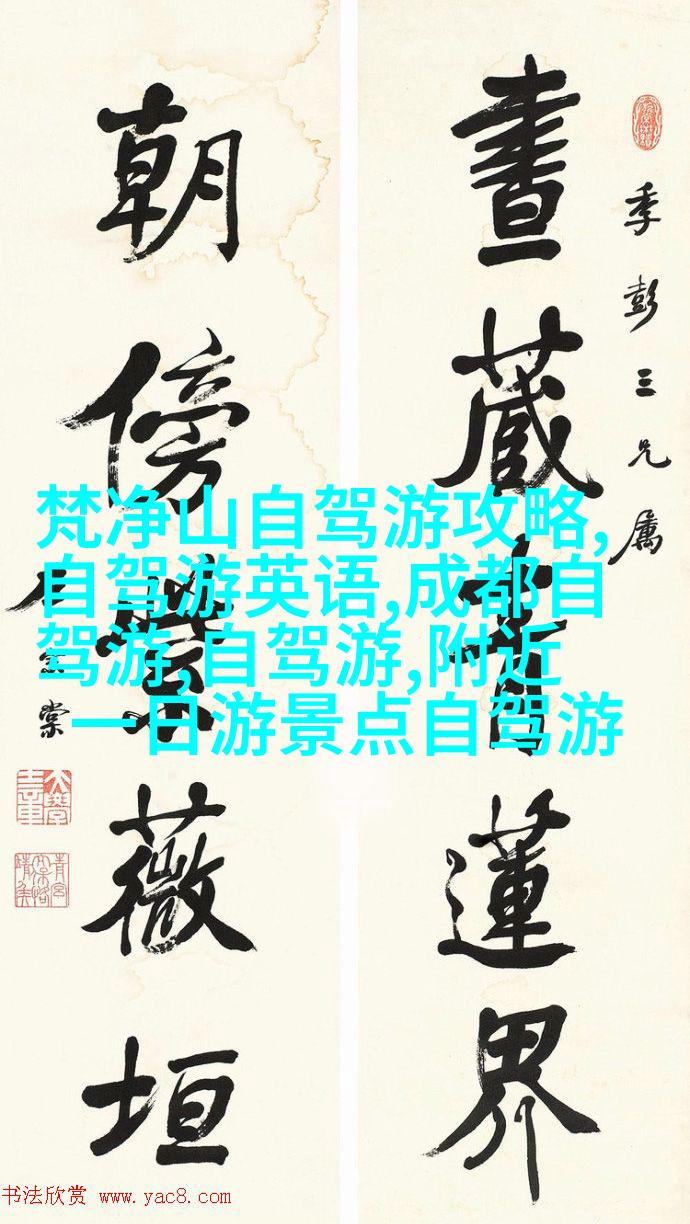 季彭三兄属
書藏青蓮界
朝傍紫薇垣
梵净山自驾游攻略,
自驾游英语,成都自
驾游,自驾游,附近
一日游景点自驾游
书法欣赏 www.yac8.com